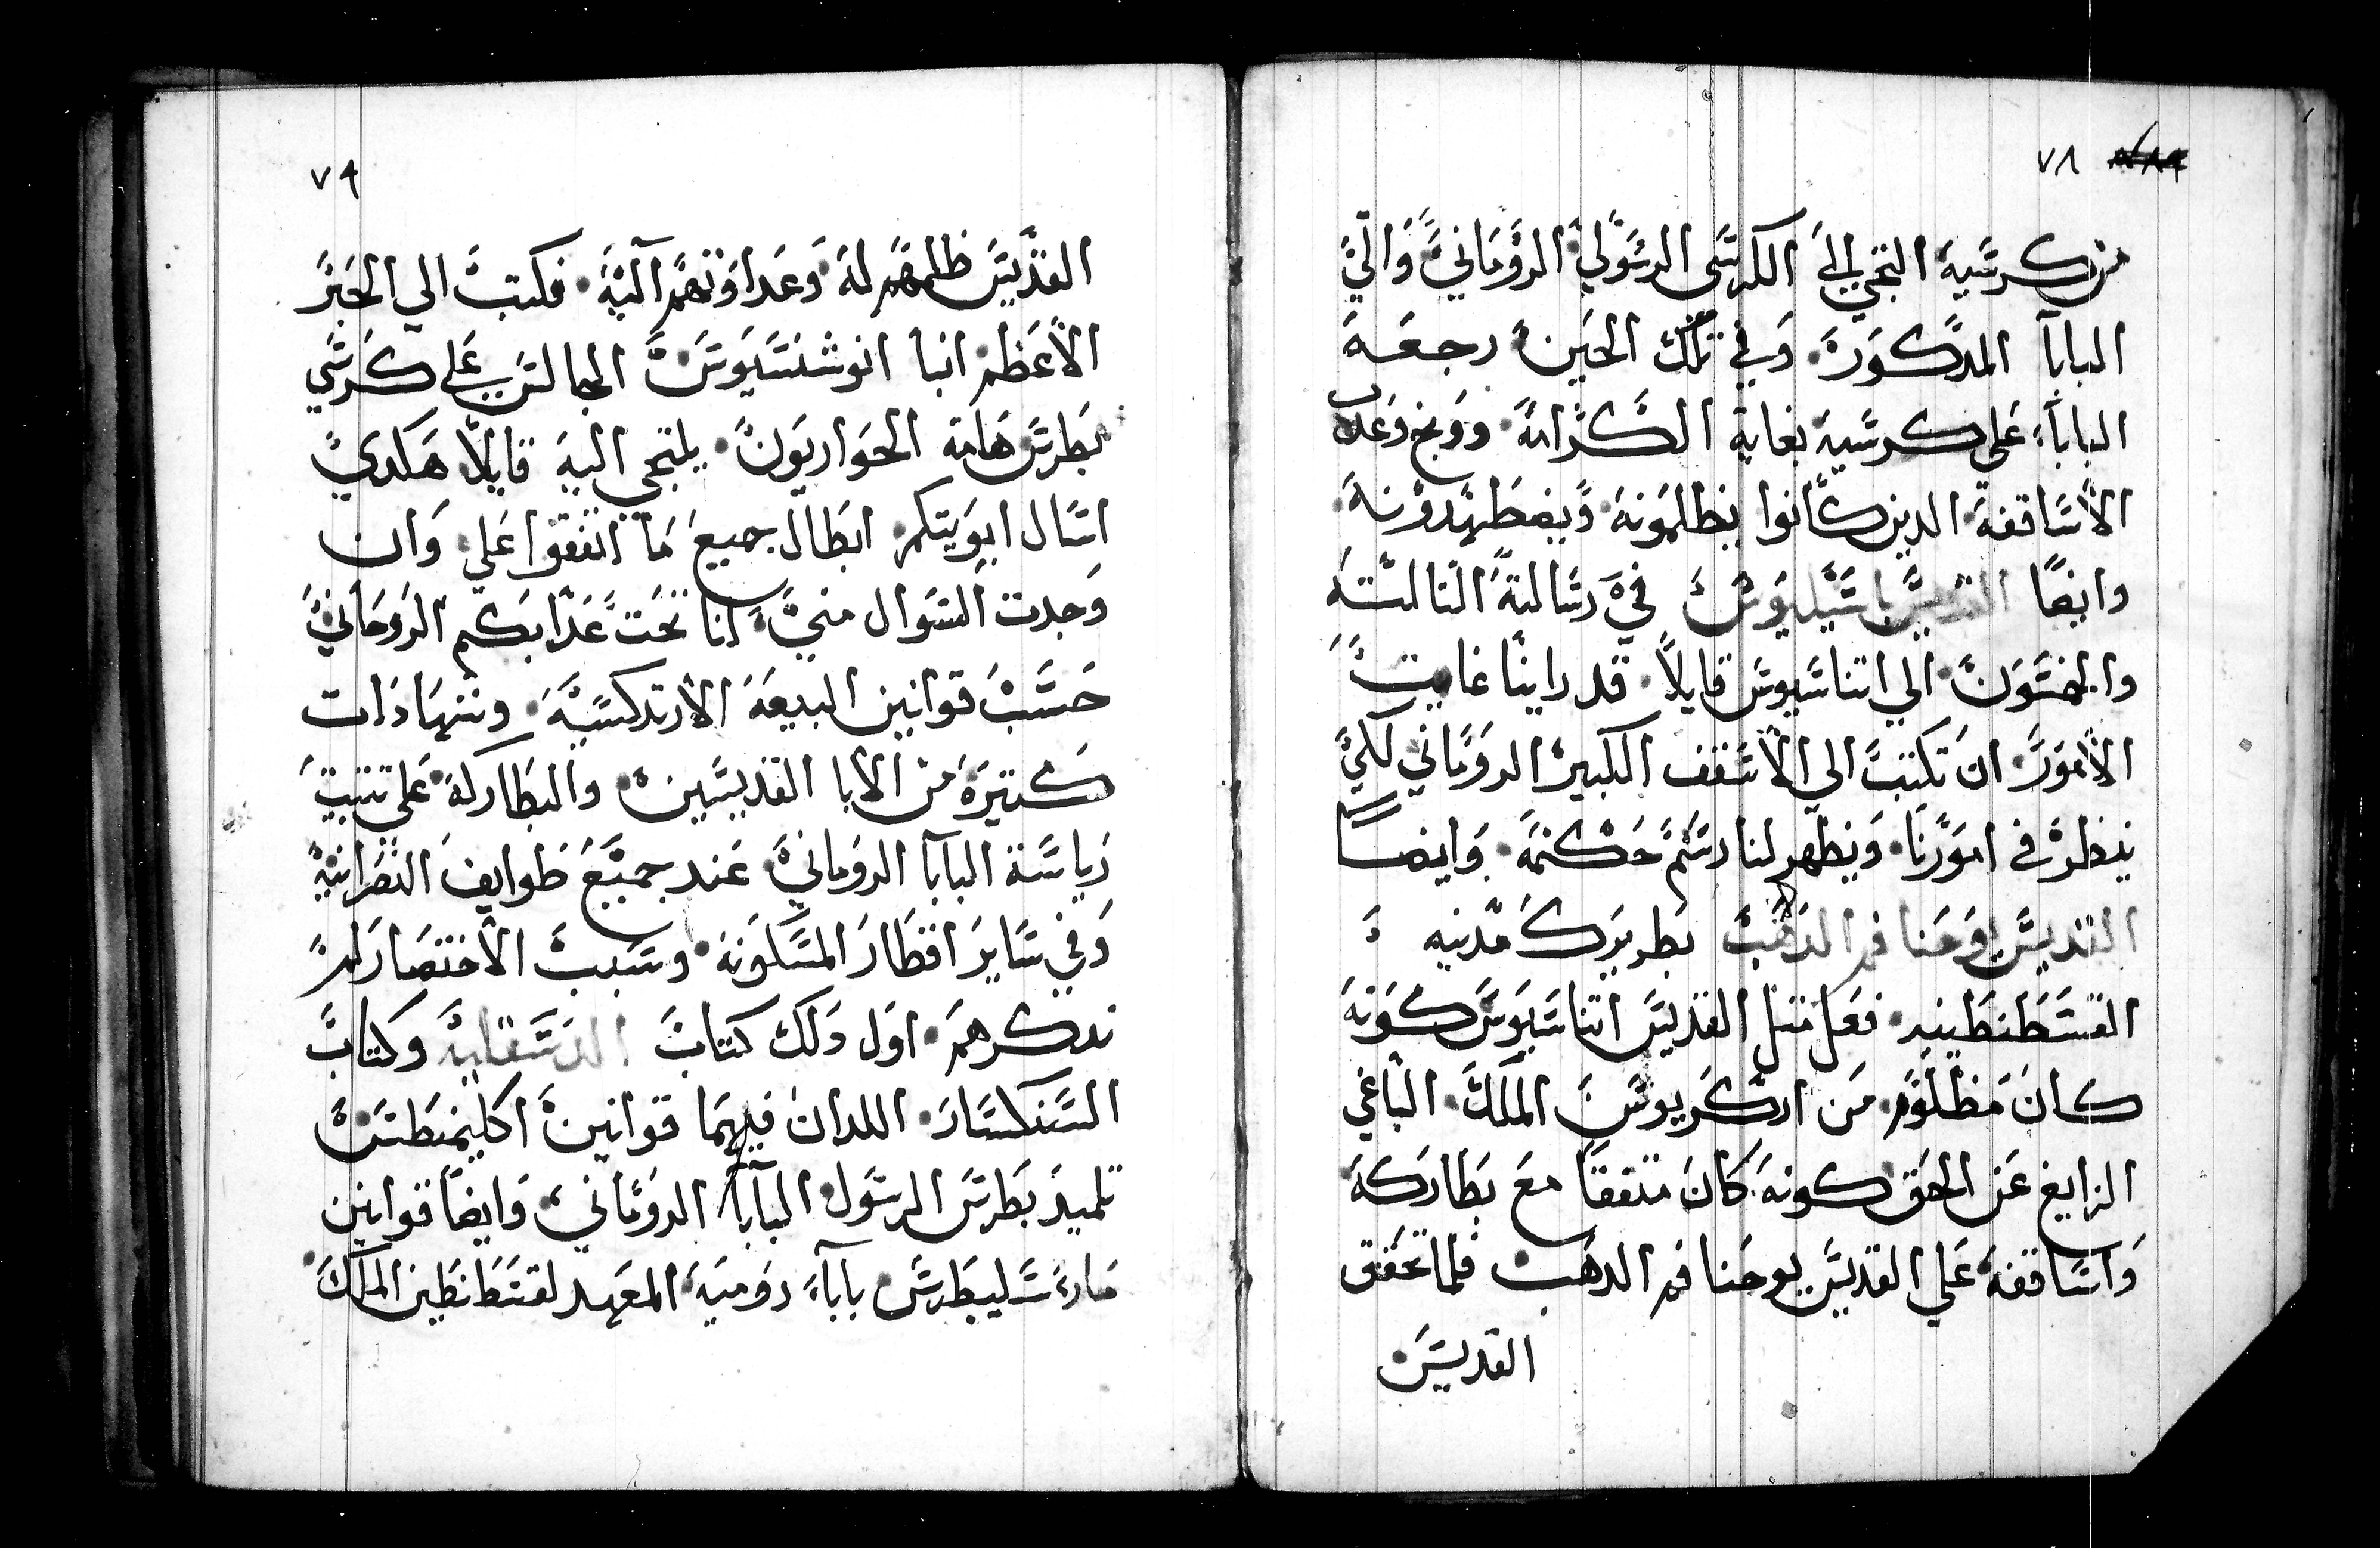 ٧٨
من كرسيه التجي الي الكرسي الرسولي الروماني والي
البابا المدكور وفي تلك الحين رجعه
البابا علي كرسيه بغاية الكرامة ووبخ وعدب
الاساقفة الدين كانوا يظلمونه ويضطهدونه
وايضا القديس باسيليوس في رسالية التالته
والخمسون الي اتناسيوس قايلا قد راينا غاية
الامور ان تكتب الي الاسقف الكبير الروماني لكي
ينظر في امورنا ويظهر لنا رسم حكمه وايضا
القديس يوحنا فم الدهب بطريرك مدنيه
القسطنطينيه فعل متل القديس اتناسيوس كونه
كان مظلوم من اركريوس الملك الباغي
الزايغ عن الحق كونه كان متفقا مع بطاركه
واساقفه علي القديس يوحنا فم الدهب فلما تحقق
القديس
٧٩
القديس ظلمهم له وعداوتهم اليه فكتب الي الحبر
الاعظم انبا انوشنسيوس الجالس علي كرسي
بطرس هامة الحواريون يلتجي اليه قايلا هكدي
اسال ابويتكم ابطال جميع ما اتفقوا علي وان
وجدت السوال مني انا تحت عدابكم الروحاني
حسب قوانين البيعه الارتدكسيه وشهادات
كتيره من الابا القديسين والبطاركه علي تتبيت
رياسة البابا الروماني عند جميع طوايف النصرانيه
وفي ساير اقطار المسكونه وسبب الاختصار لم
ندكرهم اول دلك كتاب الدسقليه وكتاب
السنكسار اللدان فيهما قوانين اكليمنطس
تلميد بطرس الرسول البابا الروماني وايضا قوانين
مار سليبطرس بابا روميه المعهد لقسطنطين الملك